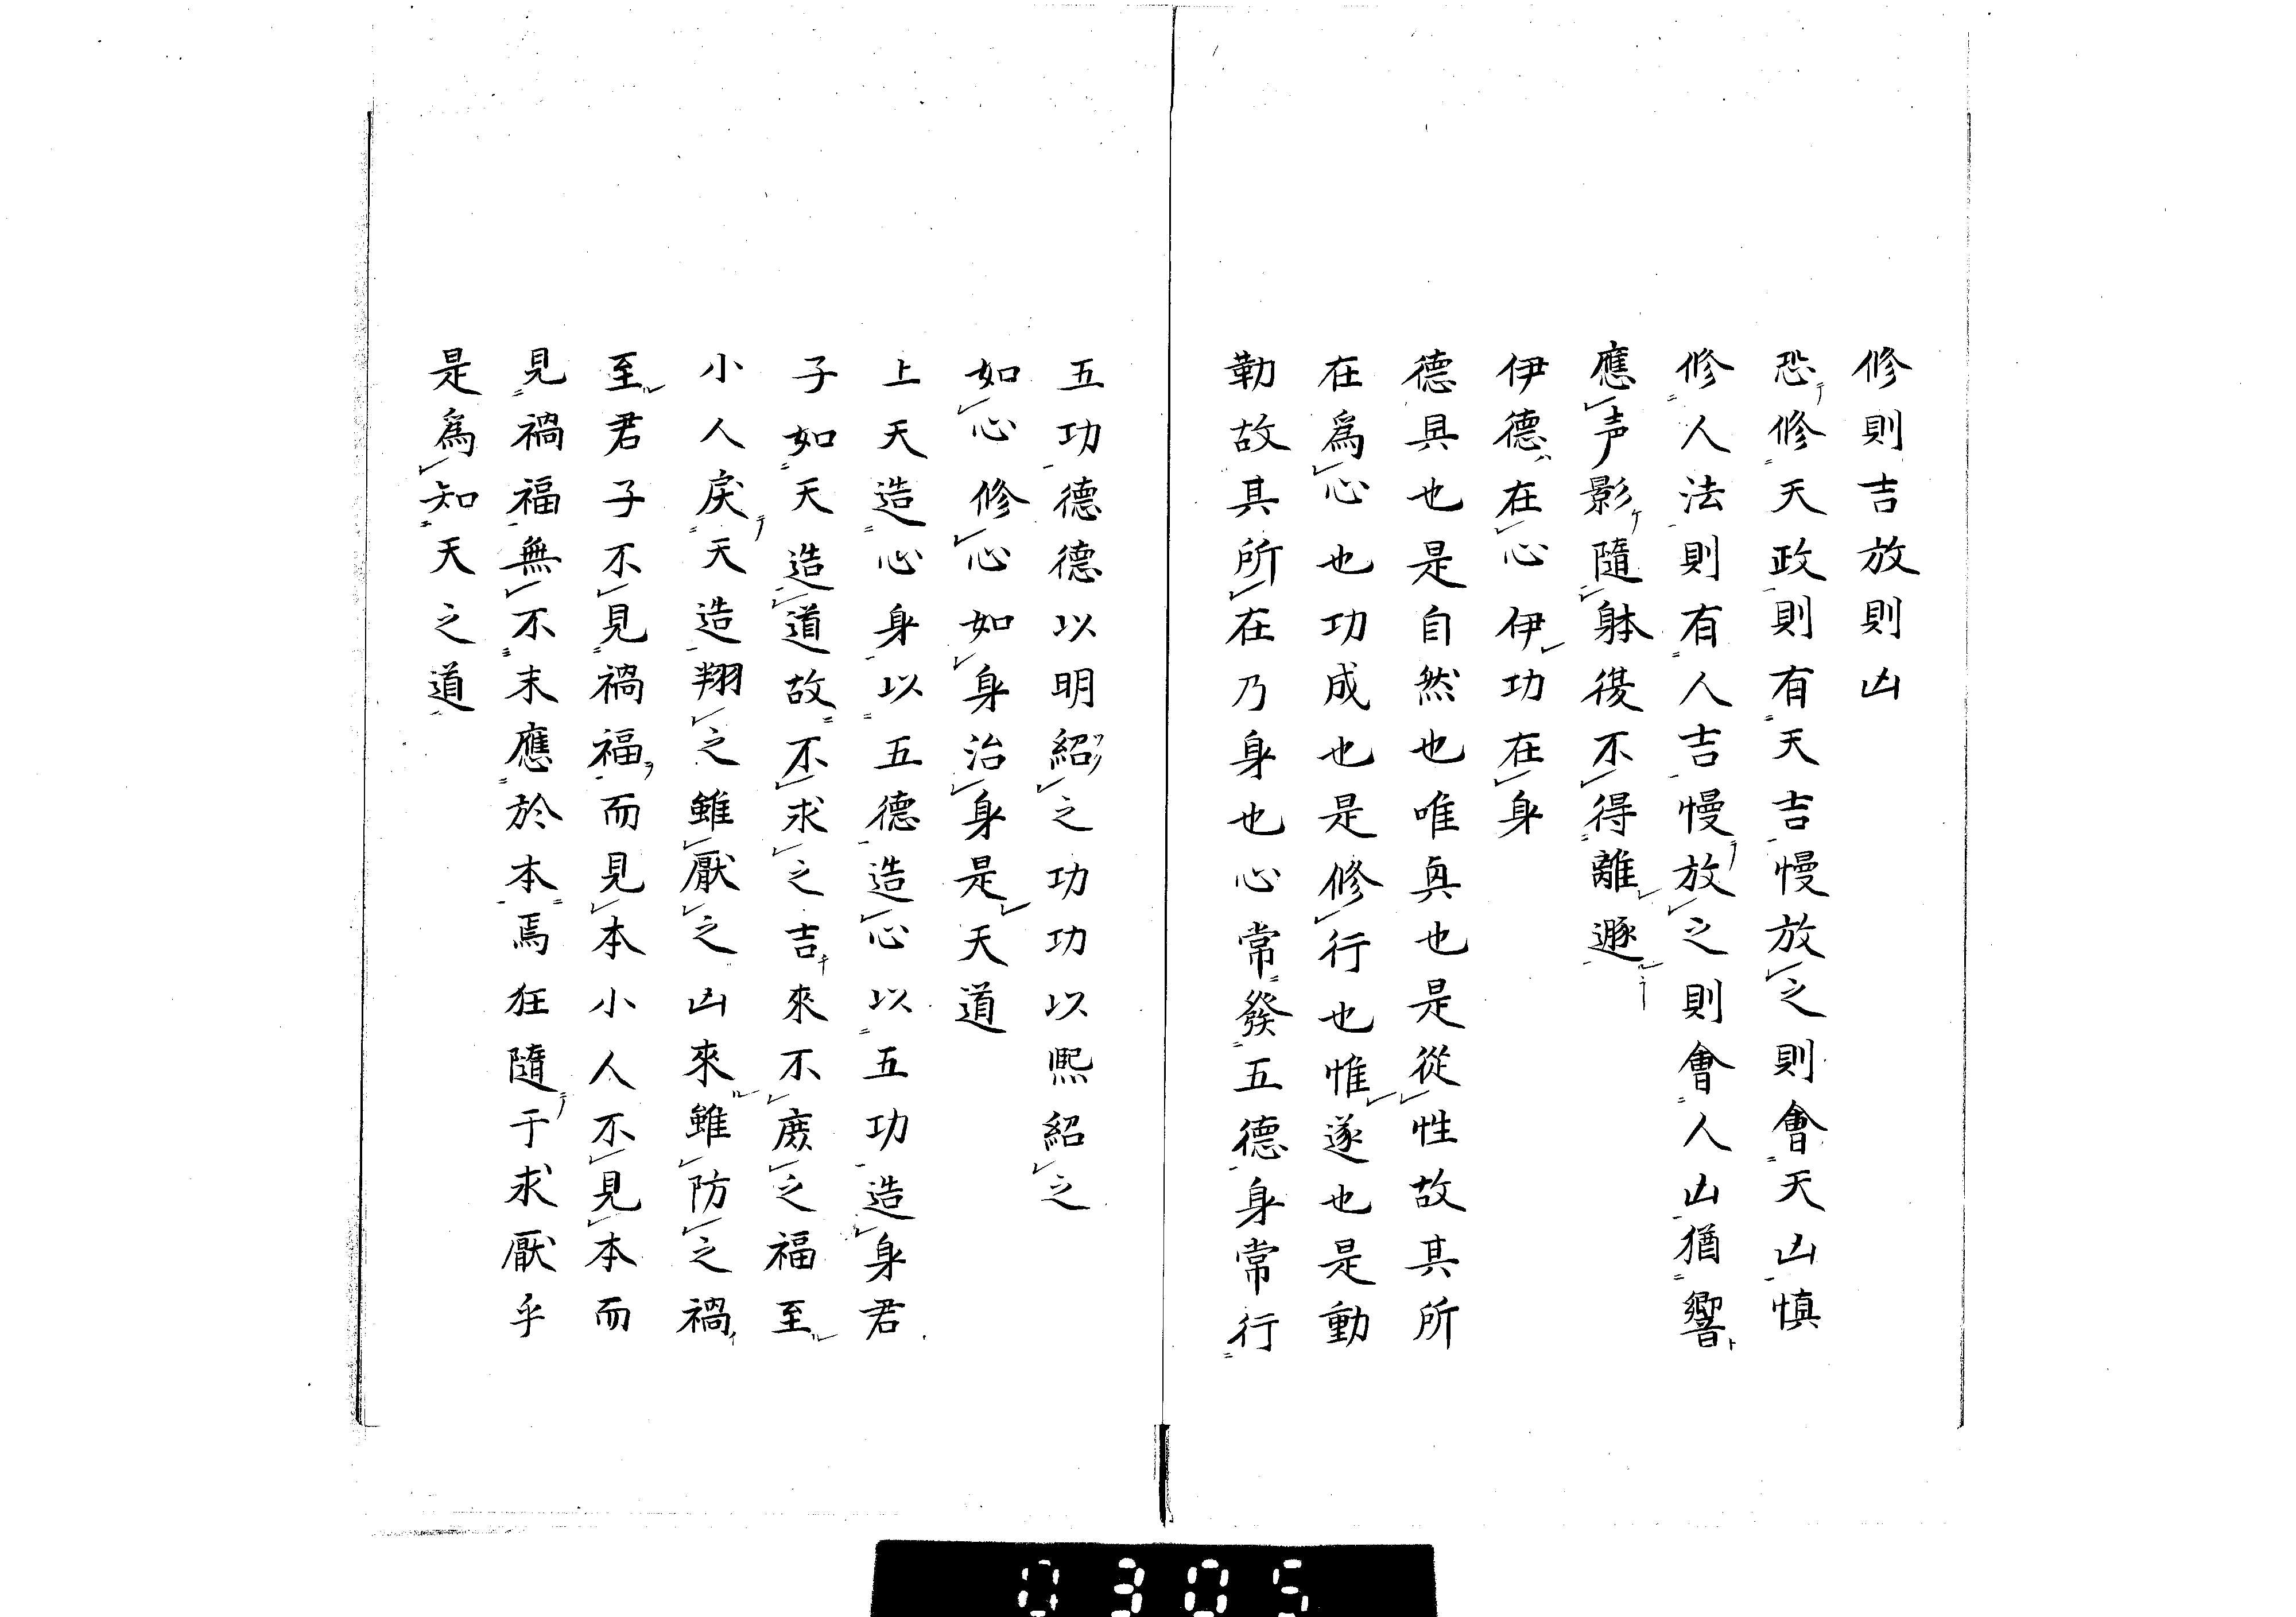 修則吉放則凶
恐修天政則有天吉慢放之則會天凶慎
修人法則有人吉慢放之則會人凶猶響
應声影隨躰復不得離遯
伊德在心伊功在身
德具也是自然也唯具也是從性故其所
在爲心也功成也是修行也惟遂也是動
勤故其所在乃身也心常發五德身常行
五功德德以明紹之功功以熈紹之
如心修心如身治身是天道
上天造心身以五德造心以五功造身君
子如天造道故不求之吉來不庶之福至
小人戾天造翔之雖厭之凶來雖防之禍
至君子不見禍福而見本小人不見本而
見禍福無不末應於本焉狂隨于求厭乎
是爲知天之道
0305